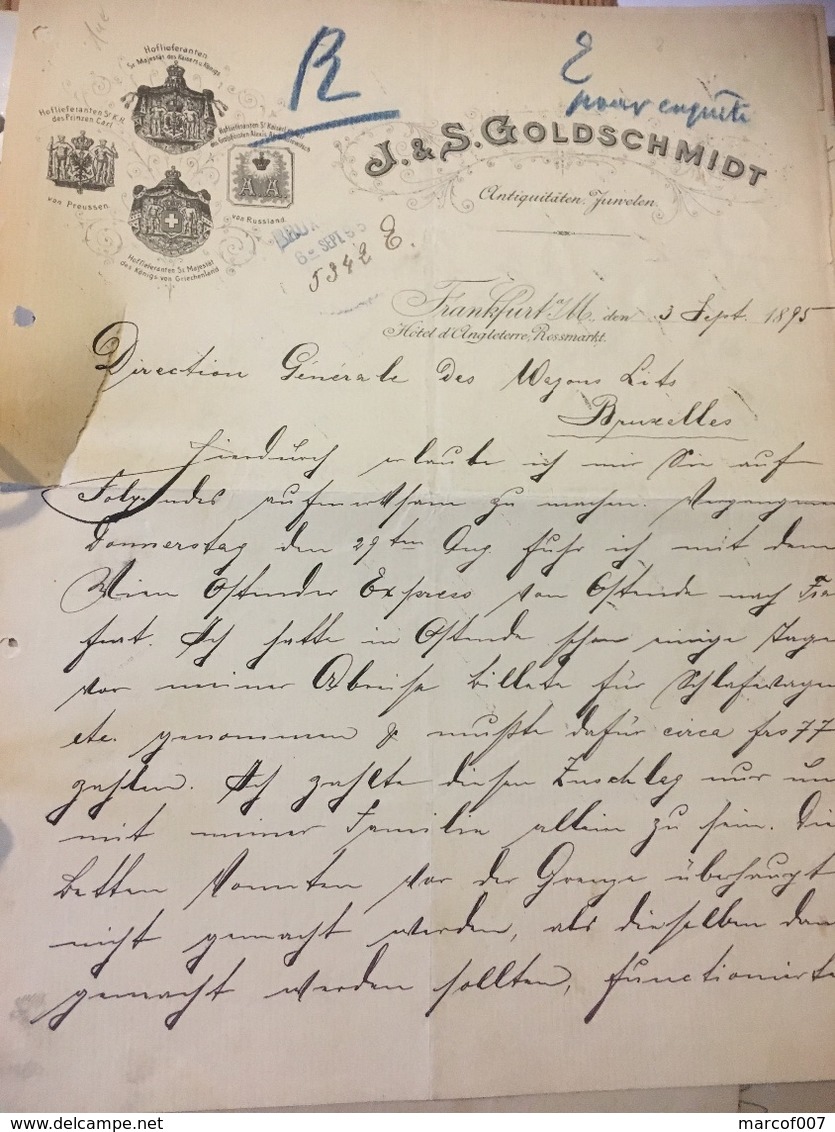 Hoflieferanten
Sr. Majestät des Kaisers u. Königs
Hoflieferanten Sr. K.H.
des Prinzen Carl
von Preussen.
Hoflieferanten Sr. Kaiserl.
von Russland.
AA
Hoflieferanten Sr. Majestät
des Königs von Griechenland
R
E
pour enquête
J. & S. GOLDSCHMIDT
Antiquitäten. Juwelen.
6 - SEPT 95
5342 E.
Frankfurt a/M. den 3 Sept. 1895
Hôtel d'Angleterre, Rossmarkt.
Direction Générale des Wagons Lits
Bruxelles
Hierdurch erlaube ich mir Sie auf
Folgendes aufmerksam zu machen. Vergangenen
Donnerstag den 29ten Aug. fuhr ich mit dem
Wien Ostender Express von Ostende nach Fra
furt. Ich hatte in Ostende schon einige Tage
vor meiner Abreise Billete für Schlafwagen
etc. genommen & mußte dafür circa frs 77
zahlen. Ich zahlte diesen Zuschlag nur um
mit meiner Familie allein zu sein. Die
Betten konnten vor der Grenze überhaupt
nicht gemacht werden, als dieselben dan
gemacht werden sollten, functionierte
marcof007